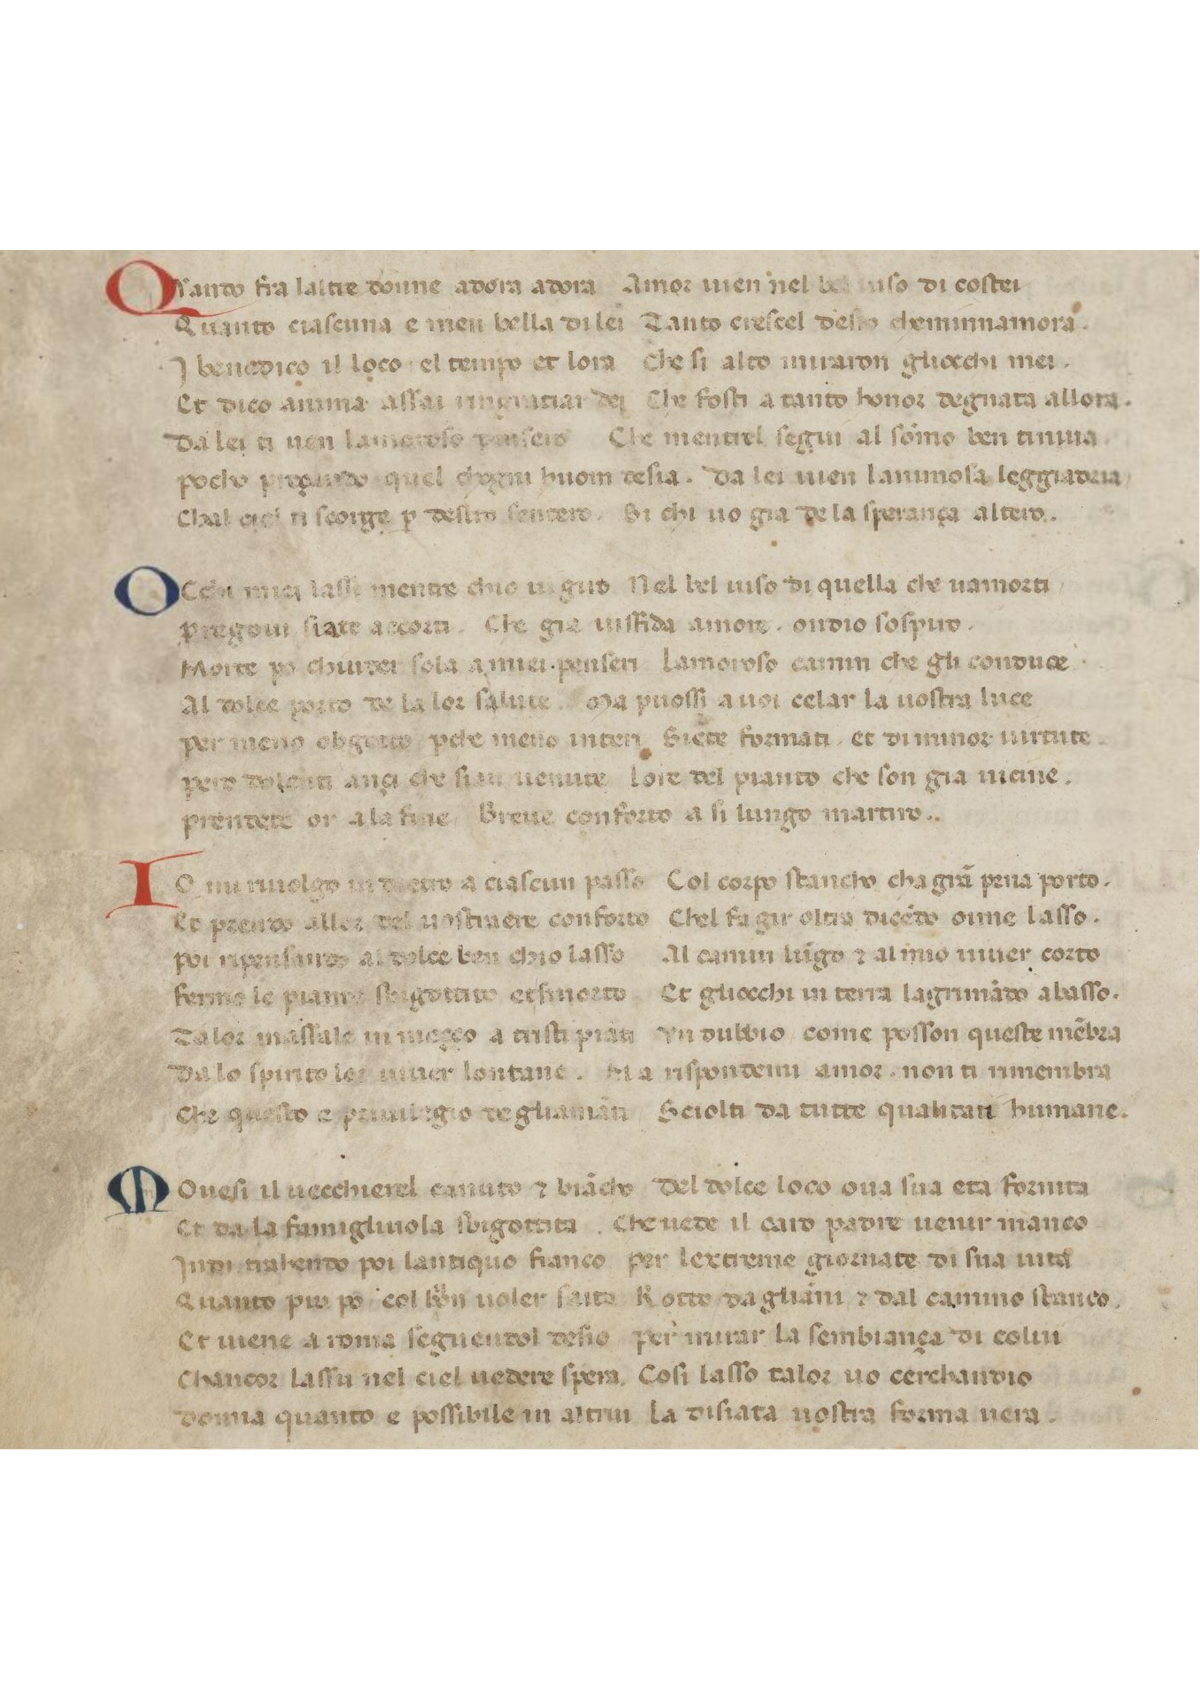 Quanto fra laltre donne adora adora Amor uien nel bel uiso di costei
Quanto ciascuna e men bella di lei Tanto crescel desio chemminnamora.
I benedico il loco el tempo et lora Che si alto miraron gliocchi mei.
Et dico anima assai ringratiar dei Che fosti a tanto honor degnata allora.
Da lei ti uen lamoroso pensero Che mentrel segui al sōmo ben tinuia.
pocho preҫando quel chogni huom desia. Da lei uien lanimosa leggiadria
Chal ciel ti scorge ꝑ destro sentero. Si chi uo gia de la sperança altero..
Occhi miei lassi mentre chio ui giro Nel bel uiso di quella che uamorti
pregoui siate accorti. Che gia uissfida amore. ondio sospiro.
Morte po chiuder sola a miei penseri Lamoroso camin che gli conduce
Al dolce porto de la lor salute. Ma puossi a uoi celar la uostra luce
per meno obgetto ꝑche meno interi Siete formati. et di minor uirtute.
pero dolenti anҫi che sian uenute Lore del pianto che son gia uicine.
prendete or a la fine Breue conforto a si lungo martiro..
IO mi riuolgo in dietro a ciascun passo Col corpo stancho cha grā pena porto.
Et prendo allor del uostraere conforto Chel fa gir oltra dicēdo oime lasso.
poi ripensando al dolce ben chio lasso Al camin lūgo ⁊ al mio uiuer corto
fermo le piante sbigottito et smorto Et gliocchi in terra lagrimādo abasso.
Talor massale in meҫҫo a tristi piāti Vn dubbio come posson queste mēbra
Da lo spirito lor uiuer lontane. Ma rispondemi amor. non ti rimembra
Che questo e priuilegio degliamāti Sciolti da tutte qualitati humane.
Mouesi il uecchierel canuto ⁊ biācho Del dolce loco oua sua eta fornita
Et da la famigliuola sbigottita. Che uede il caro padre uenir manco
Indi trahendo poi lantiquo fianco per lextreme giornate di sua uita
Quanto piu po col bon uoler saita Rotto dagliāni ⁊ dal camino stanco.
Et uiene a roma seguendol desio per mirar la sembiança di colui
Chancor lassu nel ciel uedere spera. Cosi lasso talor uo cerchandio
Donna quanto e possibile in altrui La disiata uostra forma uera.